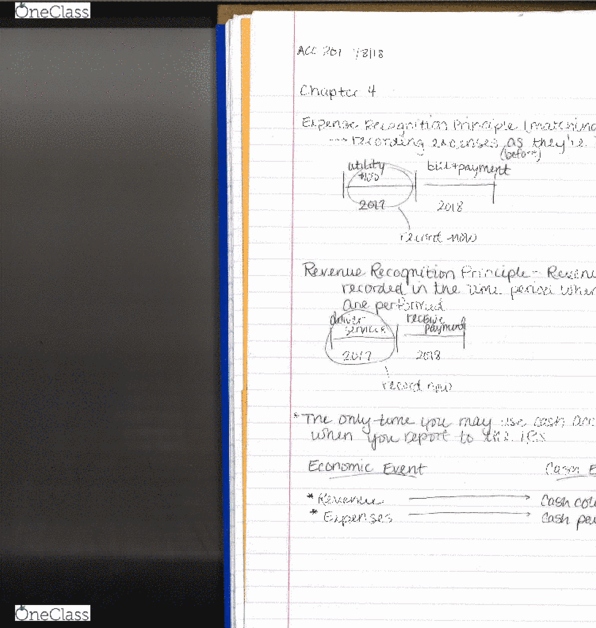 OneClass
ACC 201 1/8/18
Chapter 4
Expense Recognition Principle (matching
recording expenses as they're
(before)
utility
bill + payment
2017
2018
record now
Revenue Recognition Principle - Revenue
recorded in the time period when
are performed
deliver
services
receive
payment
2017
2018
record now
*The only time you may use cash acc
when you report to the IRS
Economic Event
Cash E
* Revenue
Cash col
* Expenses
Cash pa
OneClass